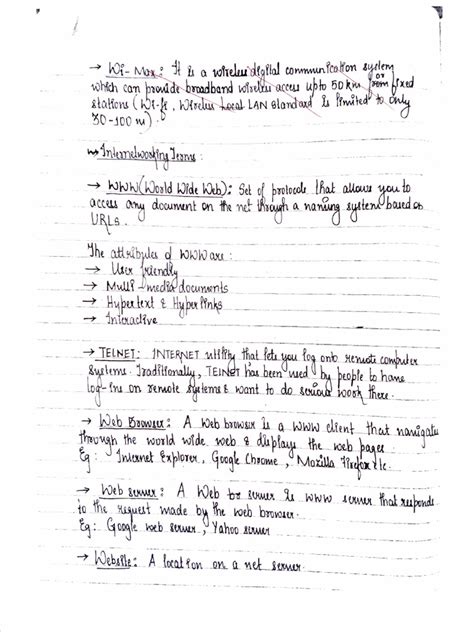 → Wi-Max : It is a wireless digital communication system
which can provide broadband wireless access upto 50 km for fixed
stations (Wi-fi, Wireless Local LAN standard is limited to only
30-100 m).
Internetworking Terms :
→ WWW (World Wide Web) : Set of protocols that allows you to
access any document on the net through a naming system based on
URLs.
The attributes of WWW are :
→ User friendly
→ Multi-media documents
→ Hypertext & Hyperlinks
→ Interactive
→ TELNET : INTERNET utility that lets you log onto remote computer
systems. Traditionally, TELNET has been used by people to have
log-ins on remote systems & want to do serious work there.
→ Web Browser : A Web browser is a WWW client that navigates
through the world wide web & displays the web pages.
Eg : Internet Explorer, Google Chrome, Mozilla Firefox etc.
→ Web server : A Web server is WWW server that responds
to the request made by the web browser.
Eg : Google web server, Yahoo server
→ Website : A location on a net server.